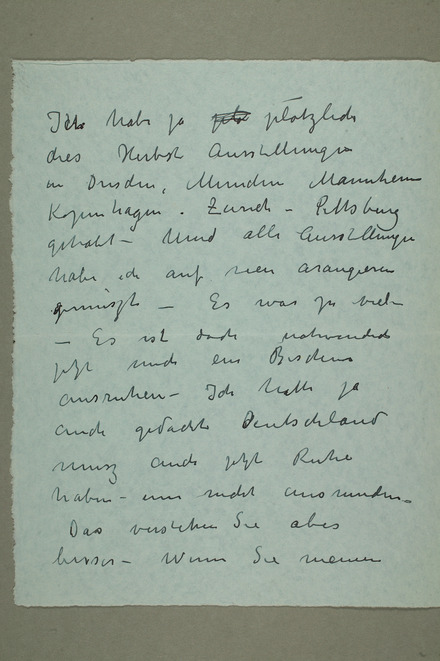 Ich habe ja plötzlich
dies Herbst Ausstellungen
in Dresden, München Mannheim
Kopenhagen. Zürich – Pittsburg
gehabt – Und alle Ausstellungen
habe ich auf neu arangieren
gemuszt – Es war zu viel –
– Es ist doch notwendich
jetzt mich ein Bischen
ausruhen – Ich hatte ja
auch gedacht Deutschland
musz auch jetzt Ruhe
haben – und nicht
Das verstehen Sie aber
besser – Wenn Sie meinen